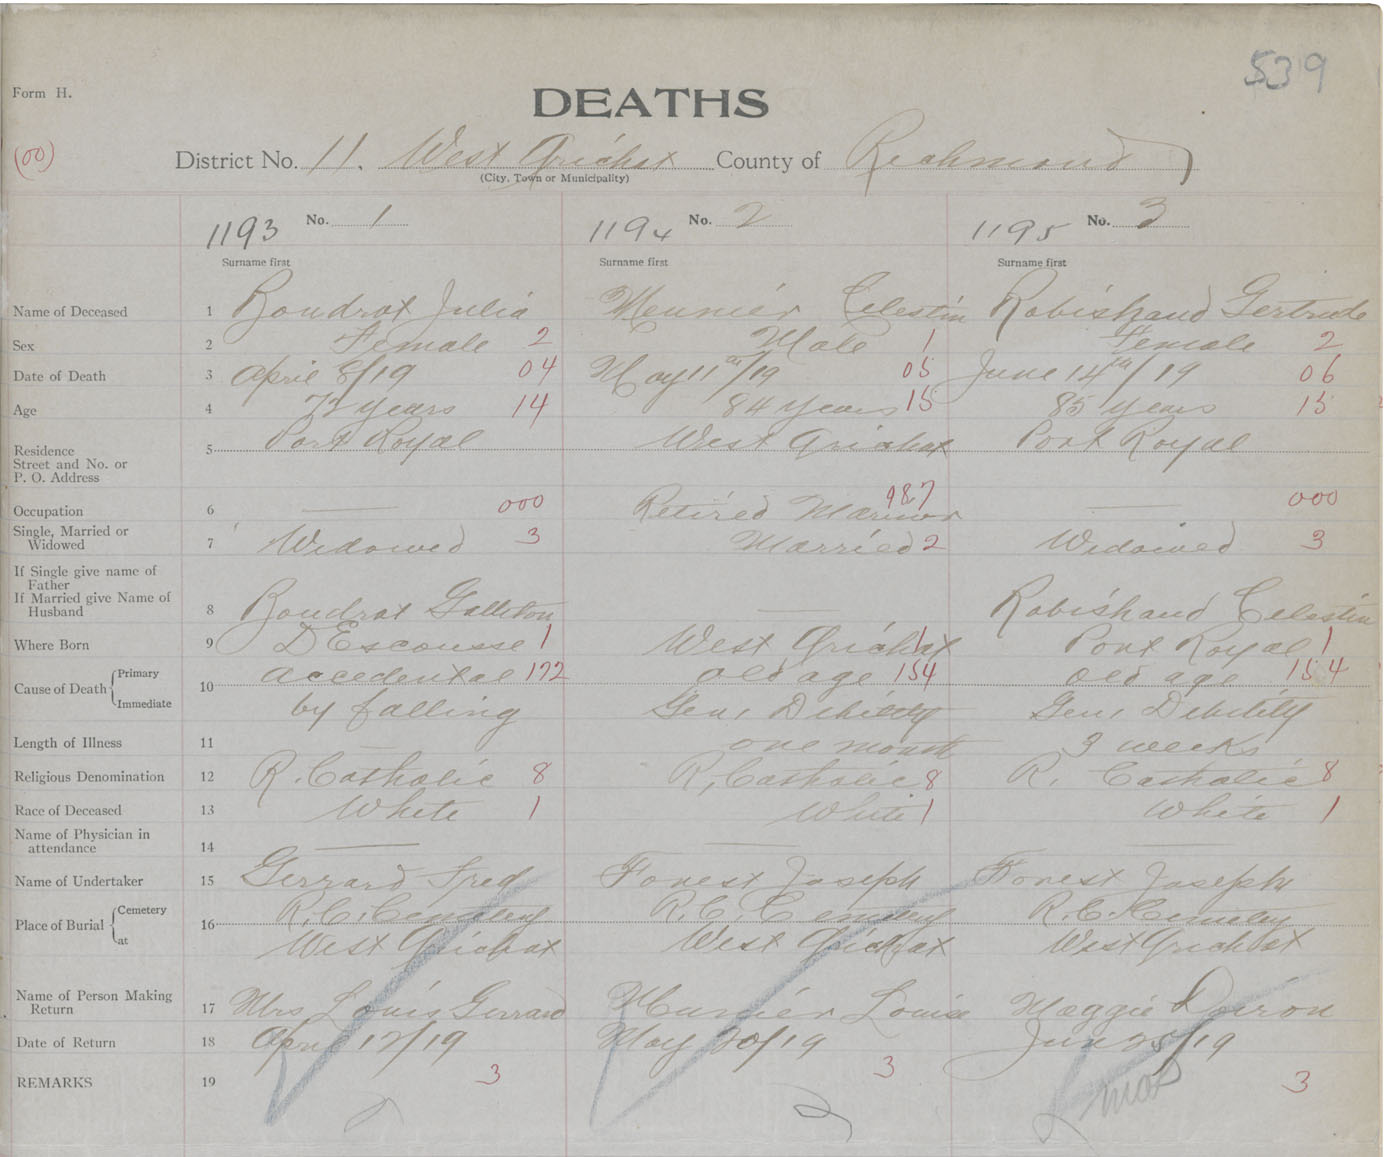 539
Form H.
DEATHS
(00)
District No. 11. West Arichat County of Richmond
(City, Town or Municipality)
1193 No. 1 1194 No. 2 1195 No. 3
Surname first Surname first Surname first
Name of Deceased 1 Boudrot Julia Meunier Celestin Robishaud Gertrude
Sex 2 Female 2 Male 1 Female 2
Date of Death 3 April 8/19 04 May 11th/19 05 June 14th/19 06
Age 4 72 years 14 84 years 15 85 years 15
Residence 5 Port Royal West Arichat Port Royal
Street and No. or
P. O. Address
Occupation 6 000 Retired Mariner 987 000
Single, Married or
Widowed 7 Widowed 3 Married 2 Widowed 3
If Single give name of
Father
If Married give Name of
Husband 8 Boudrot Robishaud Celestin
Where Born 9 DEscousse 1 West Arichat 1 Port Royal 1
Cause of Death Primary 10 accedental 172 old age 154 old age 154
Immediate by falling Gen, Debility Gen, Debility
Length of Illness 11 — one month 3 weeks
Religious Denomination 12 R. Catholic 8 R, Catholic 8 R. Catholic 8
Race of Deceased 13 White 1 White 1 White 1
Name of Physician in
attendance 14
Name of Undertaker 15 Gerrard Fred Forest Joseph Forest Joseph
Place of Burial Cemetery 16 R.C. Cemetery R.C. Cemetery R.C. Cemetery
at West Arichat West Arichat West Arichat
Name of Person Making
Return 17 Mrs Louis Gerrard Munier Louise Maggie Doiron
Date of Return 18 April 12/19 May 20/19 Jun 25/19
REMARKS 19 3 3 3